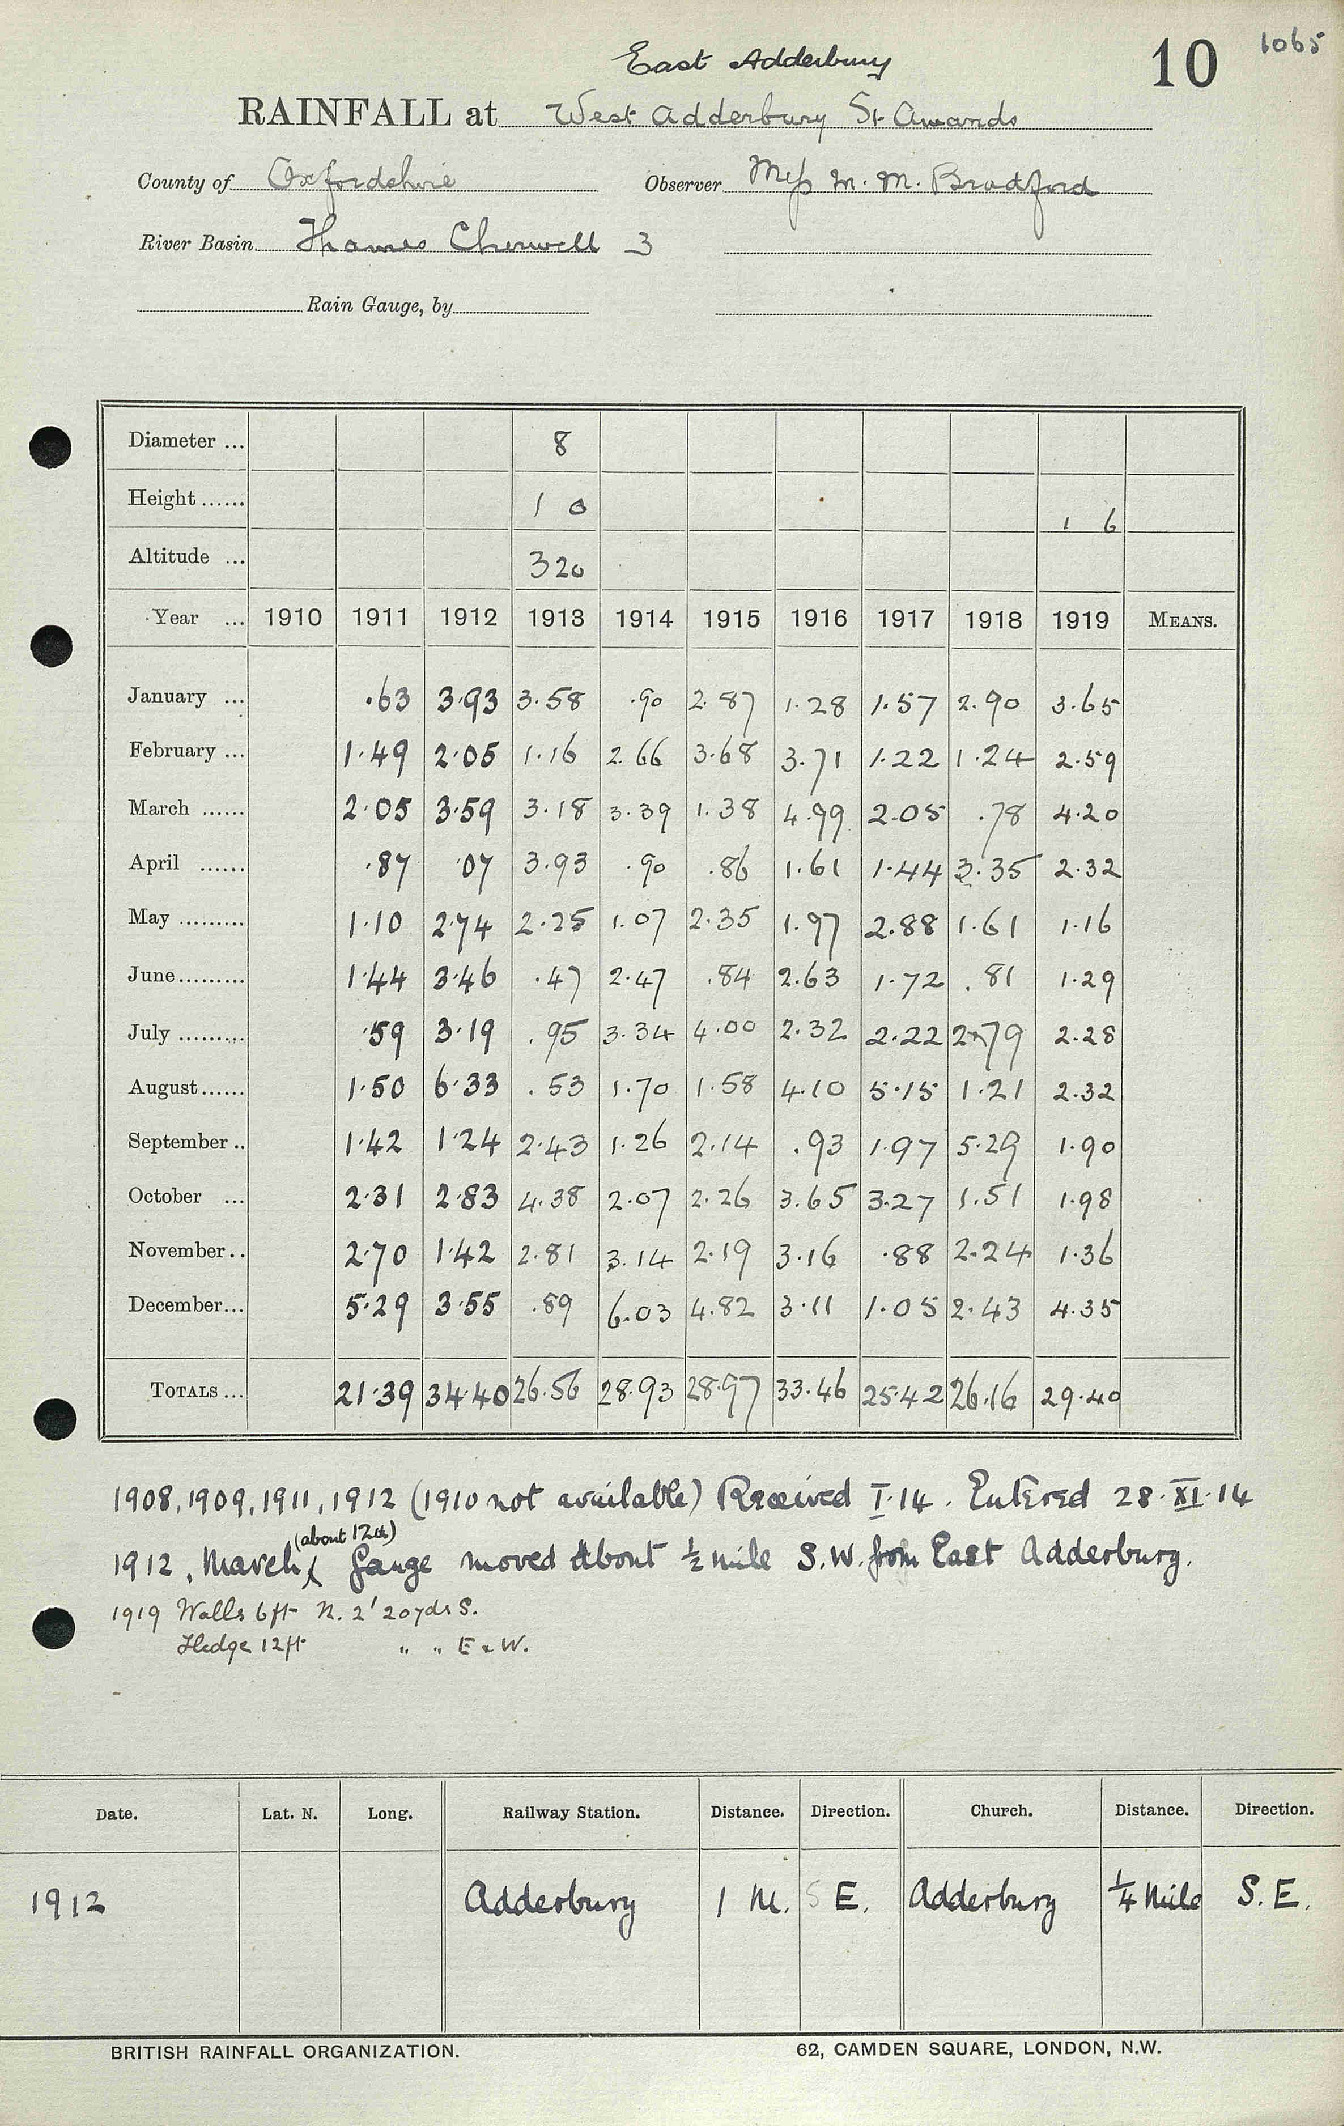 1065
10
East Adderbury
RAINFALL at West Adderbury St Amands
County of Oxfordshire Observer Miss M. M. Bradford
River Basin Thames Cherwell 3
Rain Gauge, by
Diameter ... 8
Height ...... 1 0 1 6
Altitude ... 320
Year ... 1910 1911 1912 1913 1914 1915 1916 1917 1918 1919 MEANS.
January ... .63 3.93 3.58 .90 2.87 1.28 1.57 2.90 3.65
February ... 1.49 2.05 1.16 2.66 3.68 3.71 1.22 1.24 2.59
March ...... 2.05 3.59 3.18 3.39 1.38 4.99 2.05 .78 4.20
April ...... .87 .07 3.93 .90 .86 1.61 1.44 3.35 2.32
May ......... 1.10 2.74 2.25 1.07 2.35 1.97 2.88 1.61 1.16
June......... 1.44 3.46 .47 2.47 .84 2.63 1.72 .81 1.29
July ......... .59 3.19 .95 3.34 4.00 2.32 2.22 2.79 2.28
August...... 1.50 6.33 .53 1.70 1.58 4.10 5.15 1.21 2.32
September .. 1.42 1.24 2.43 1.26 2.14 .93 1.97 5.29 1.90
October ... 2.31 2.83 4.38 2.07 2.26 3.65 3.27 1.51 1.98
November.. 2.70 1.42 2.81 3.14 2.19 3.16 .88 2.24 1.36
December... 5.29 3.55 .89 6.03 4.82 3.11 1.05 2.43 4.35
TOTALS ... 21.39 34.40 26.56 28.93 28.97 33.46 25.42 26.16 29.40
1908, 1909, 1911, 1912 (1910 not available) Received I.14. Entered 28.XI.14
(about 12th)
1912, March, Gauge moved about ½ mile S.W. from East Adderbury.
1919 Walls 6ft N. 2' 20yds S.
Hedge 12ft " " E & W.
Date. Lat. N. Long. Railway Station. Distance. Direction. Church. Distance. Direction.
1912 Adderbury 1 M. S E. Adderbury ¼ Mile S. E.
BRITISH RAINFALL ORGANIZATION. 62, CAMDEN SQUARE, LONDON, N.W.